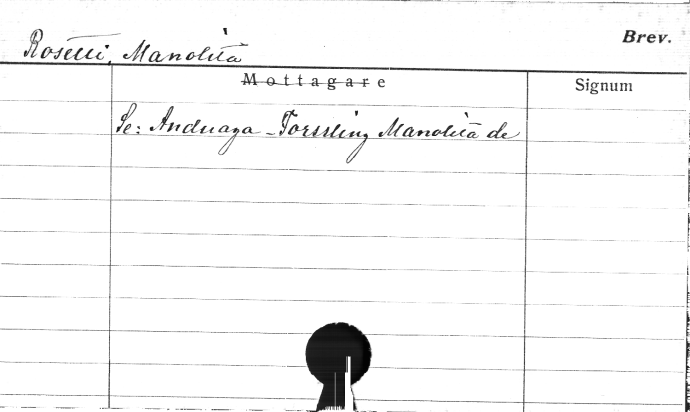 Brev.
Rosetti, Manolita
Mottagare
Signum
Se: Anduaga-Forssling Manolita de